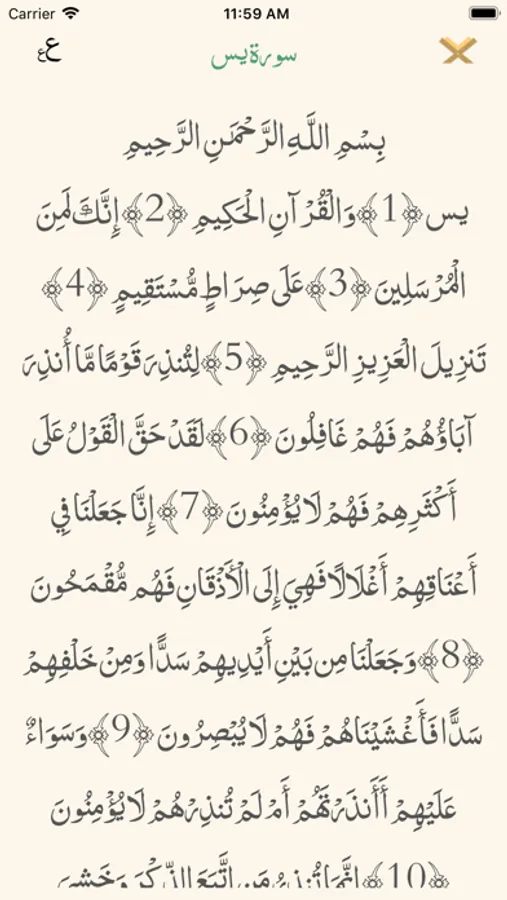 Carrier 11:59 AM
سورة يس
ع ع
بِسْمِ اللَّهِ الرَّحْمَنِ الرَّحِيمِ
يس ﴿1﴾ وَالْقُرْآنِ الْحَكِيمِ ﴿2﴾ إِنَّكَ لَمِنَ
الْمُرْسَلِينَ ﴿3﴾ عَلَى صِرَاطٍ مُّسْتَقِيمٍ ﴿4﴾
تَنزِيلَ الْعَزِيزِ الرَّحِيمِ ﴿5﴾ لِتُنذِرَ قَوْمًا مَّا أُنذِرَ
آبَاؤُهُمْ فَهُمْ غَافِلُونَ ﴿6﴾ لَقَدْ حَقَّ الْقَوْلُ عَلَى
أَكْثَرِهِمْ فَهُمْ لَا يُؤْمِنُونَ ﴿7﴾ إِنَّا جَعَلْنَا فِي
أَعْنَاقِهِمْ أَغْلَالًا فَهِيَ إِلَى الْأَذْقَانِ فَهُم مُّقْمَحُونَ
﴿8﴾ وَجَعَلْنَا مِن بَيْنِ أَيْدِيهِمْ سَدًّا وَمِنْ خَلْفِهِمْ
سَدًّا فَأَغْشَيْنَاهُمْ فَهُمْ لَا يُبْصِرُونَ ﴿9﴾ وَسَوَاءٌ
عَلَيْهِمْ أَأَنذَرْتَهُمْ أَمْ لَمْ تُنذِرْهُمْ لَا يُؤْمِنُونَ
﴿10﴾ إِنَّمَا تُنذِرُ مَنِ اتَّبَعَ الذِّكْرَ وَخَشِيَ